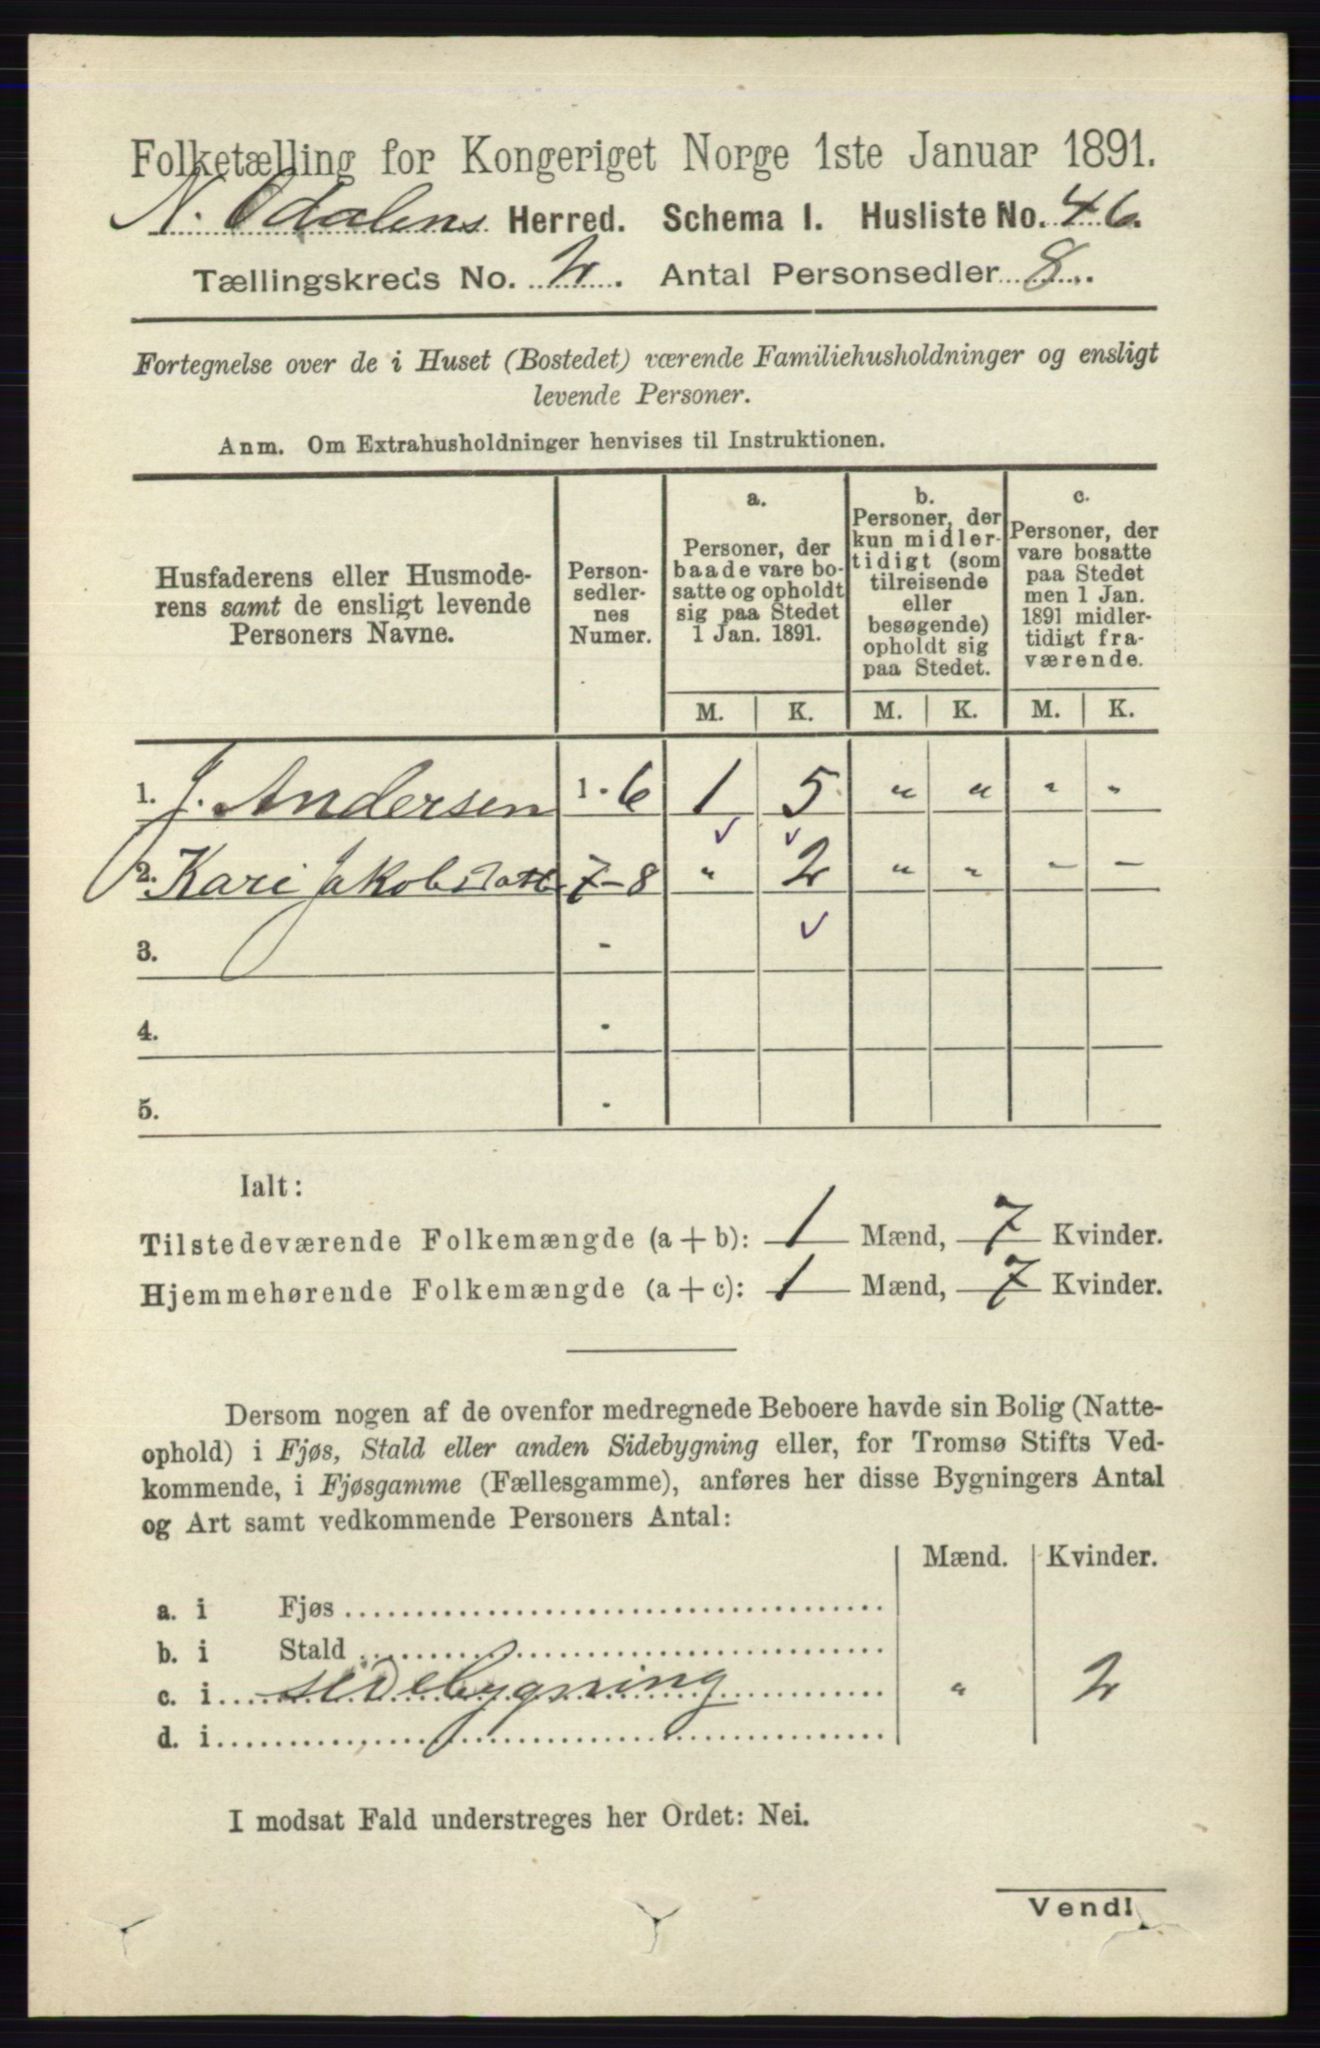 Folketælling for Kongeriget Norge 1ste Januar 1891.
N. Odalens Herred. Schema I. Husliste No. 46.
Tællingskreds No. 2. Antal Personsedler 8.
Fortegnelse over de i Huset (Bostedet) værende Familiehusholdninger og ensligt
levende Personer.
Anm. Om Extrahusholdninger henvises til Instruktionen.
Husfaderens eller Husmode-
rens samt de ensligt levende
Personers Navne.
Person-
sedler-
nes
Numer.
a.
Personer, der
baade vare bo-
satte og opholdt
sig paa Stedet
1 Jan. 1891.
b.
Personer, der
kun midler-
tidigt (som
tilreisende
eller
besøgende)
opholdt sig
paa Stedet.
c.
Personer, der
vare bosatte
paa Stedet
men 1 Jan.
1891 midler-
tidigt fra-
værende.
M. K. M. K. M. K.
1. J. Andersen 1 - 6 1 5 " " " "
2. Kari Jakobsdatt 7-8 " 2 " " - -
3. -
4. -
5. -
Ialt:
Tilstedeværende Folkemængde (a + b): 1 Mænd, 7 Kvinder.
Hjemmehørende Folkemængde (a + c): 1 Mænd, 7 Kvinder.
Dersom nogen af de ovenfor medregnede Beboere havde sin Bolig (Natte-
ophold) i Fjøs, Stald eller anden Sidebygning eller, for Tromsø Stifts Ved-
kommende, i Fjøsgamme (Fællesgamme), anføres her disse Bygningers Antal
og Art samt vedkommende Personers Antal:
Mænd. Kvinder.
a. i Fjøs
b. i Stald
c. i sidebygning " 2
d. i
I modsat Fald understreges her Ordet: Nei.
Vend!